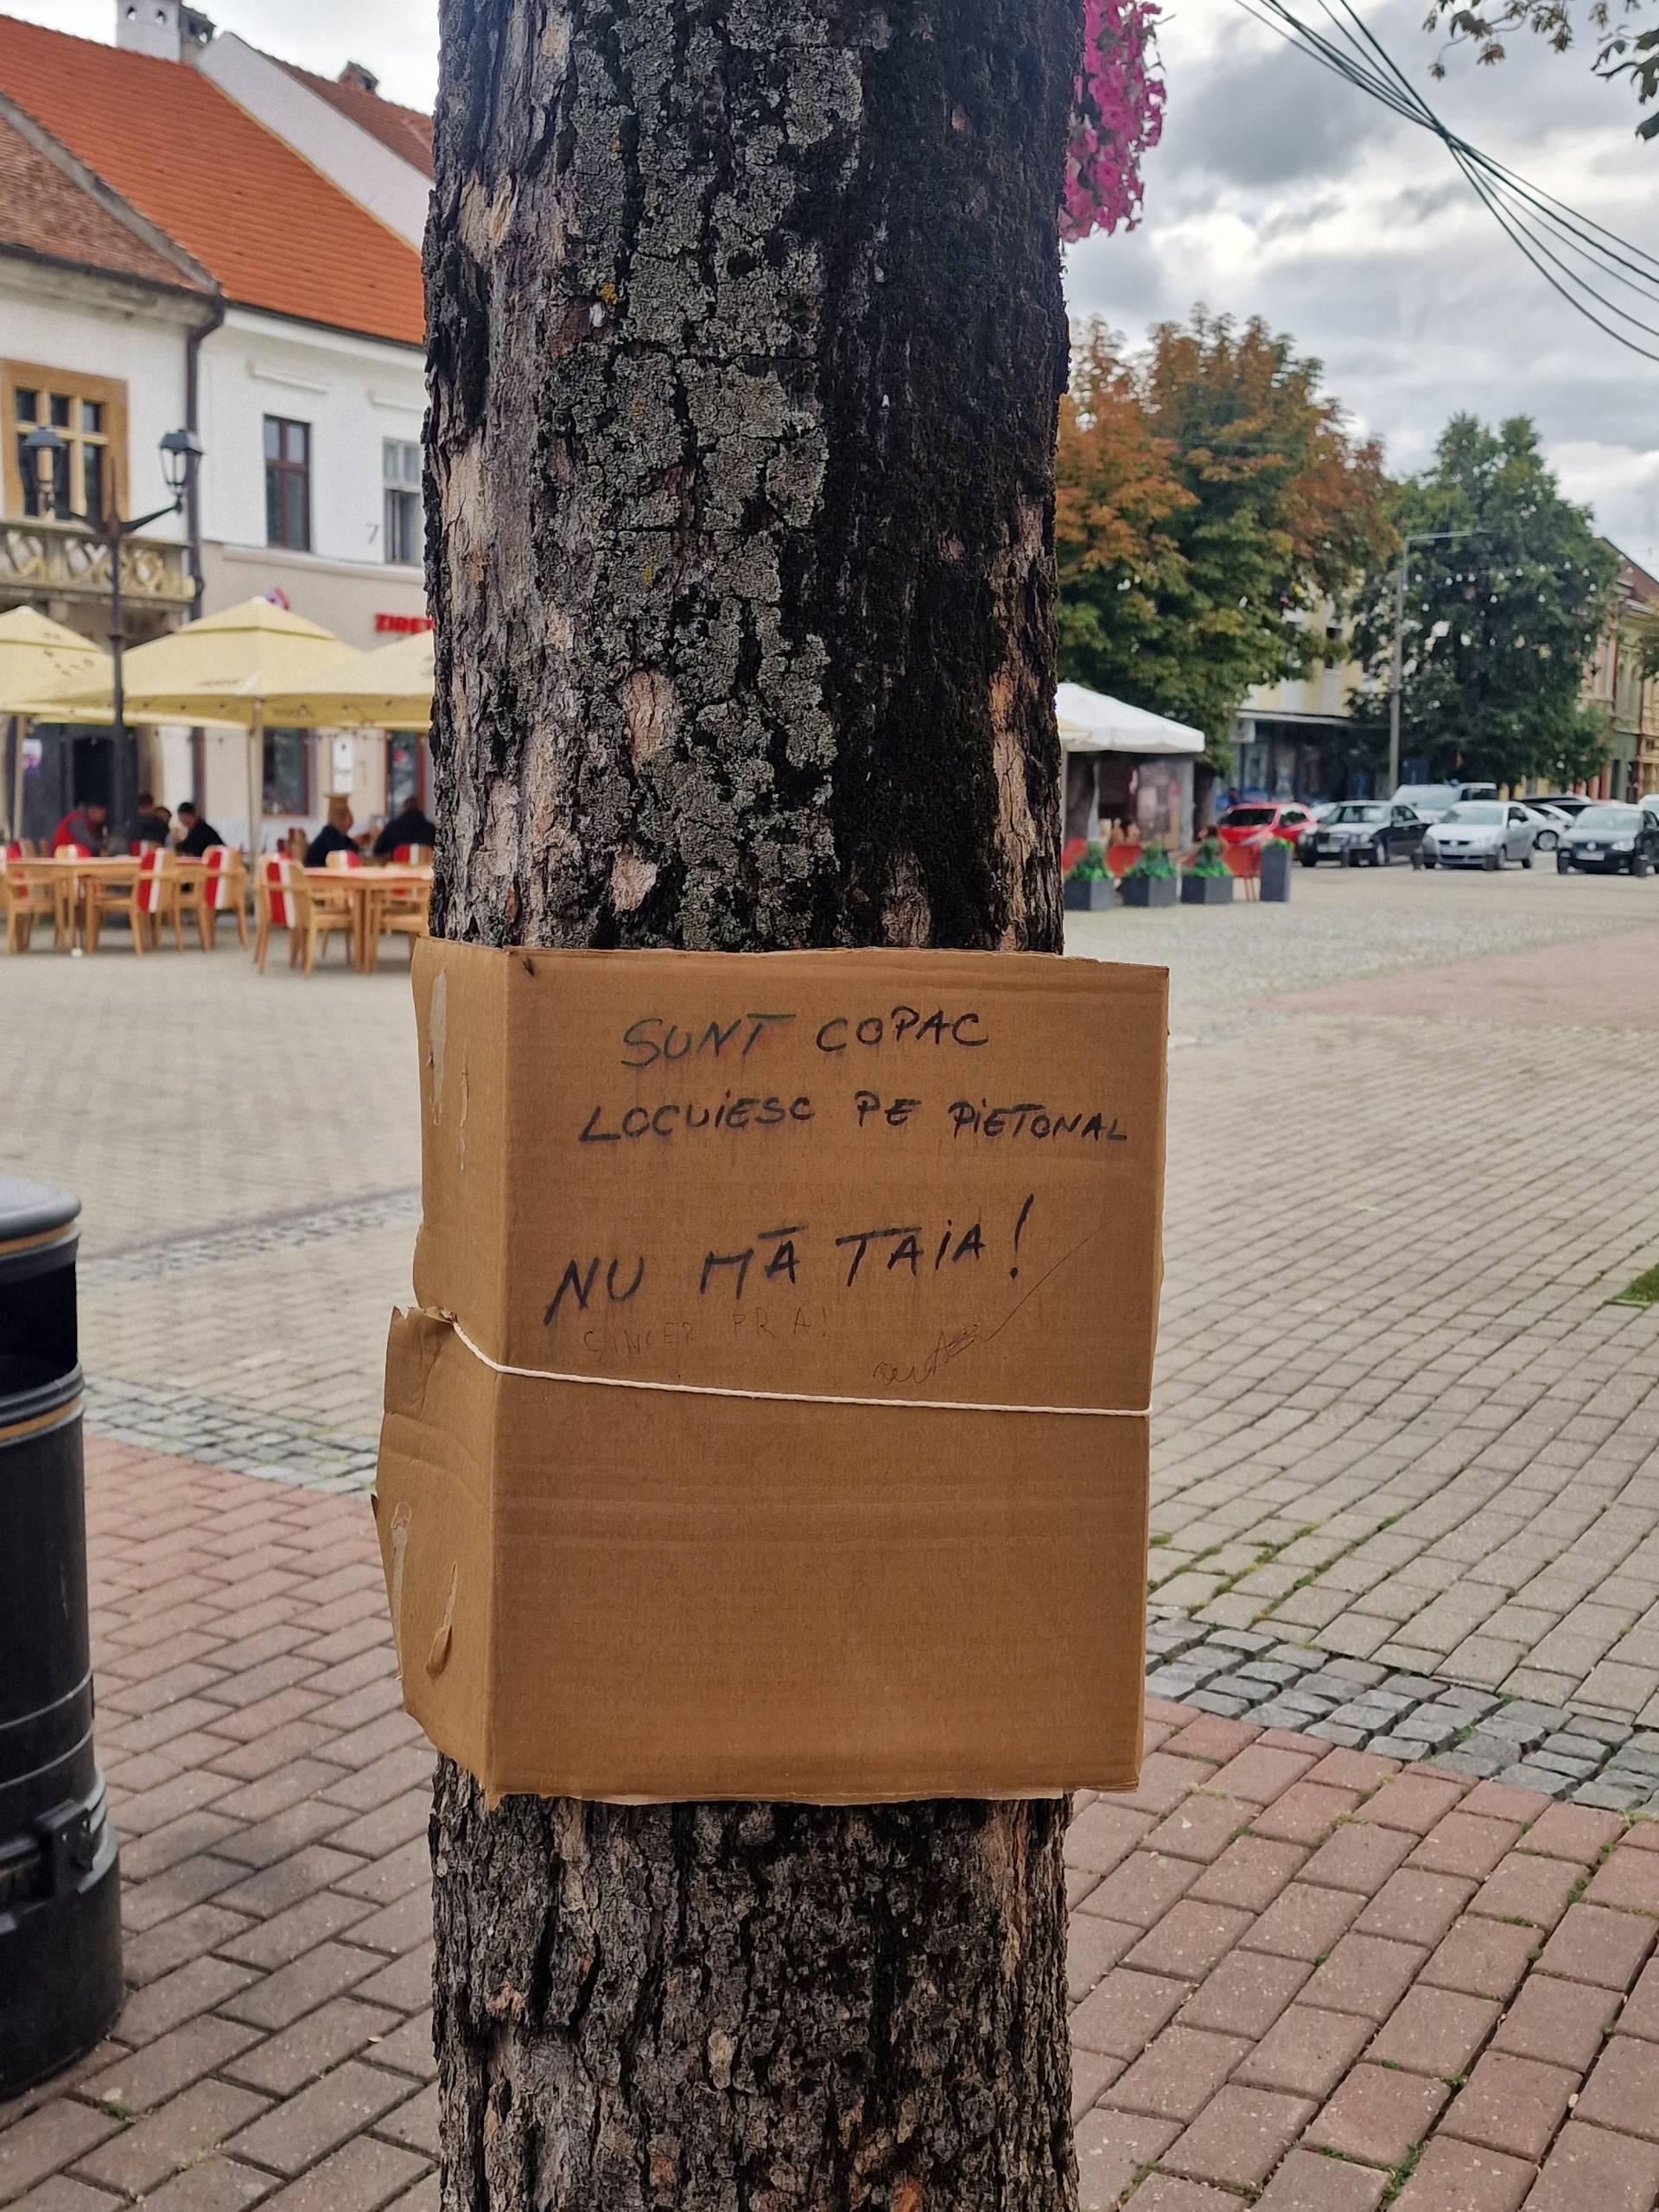 7
SUNT COPAC
LOCUIESC PE PIETONAL
NU MĂ TĂIA!
SINCER PR A!